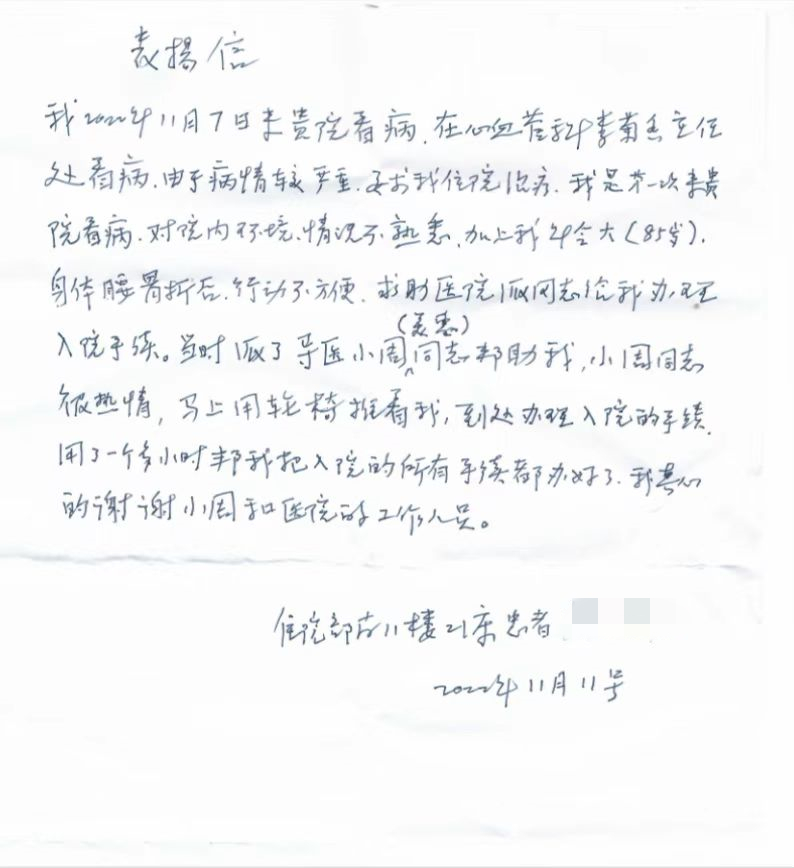 表揚信
我2022年11月7日来贵院看病.在心血管科李菊香主任
处看病.由于病情较严重.要求我住院治疗.我是第一次来贵
院看病.对院内环境.情况不熟悉.加上我年令大(85岁).
身体腰骨折后.行动不方便.求助医院派同志给我办理
入院手续。当时派了导医小周同志帮助我,小周同志
很热情,马上用轮椅推着我,到处办理入院的手续.
用了一个多小时帮我把入院的所有手续都办好了.我真心
的谢谢小周和医院的工作人员。
住院部 11楼21床患者
2022年11月11号